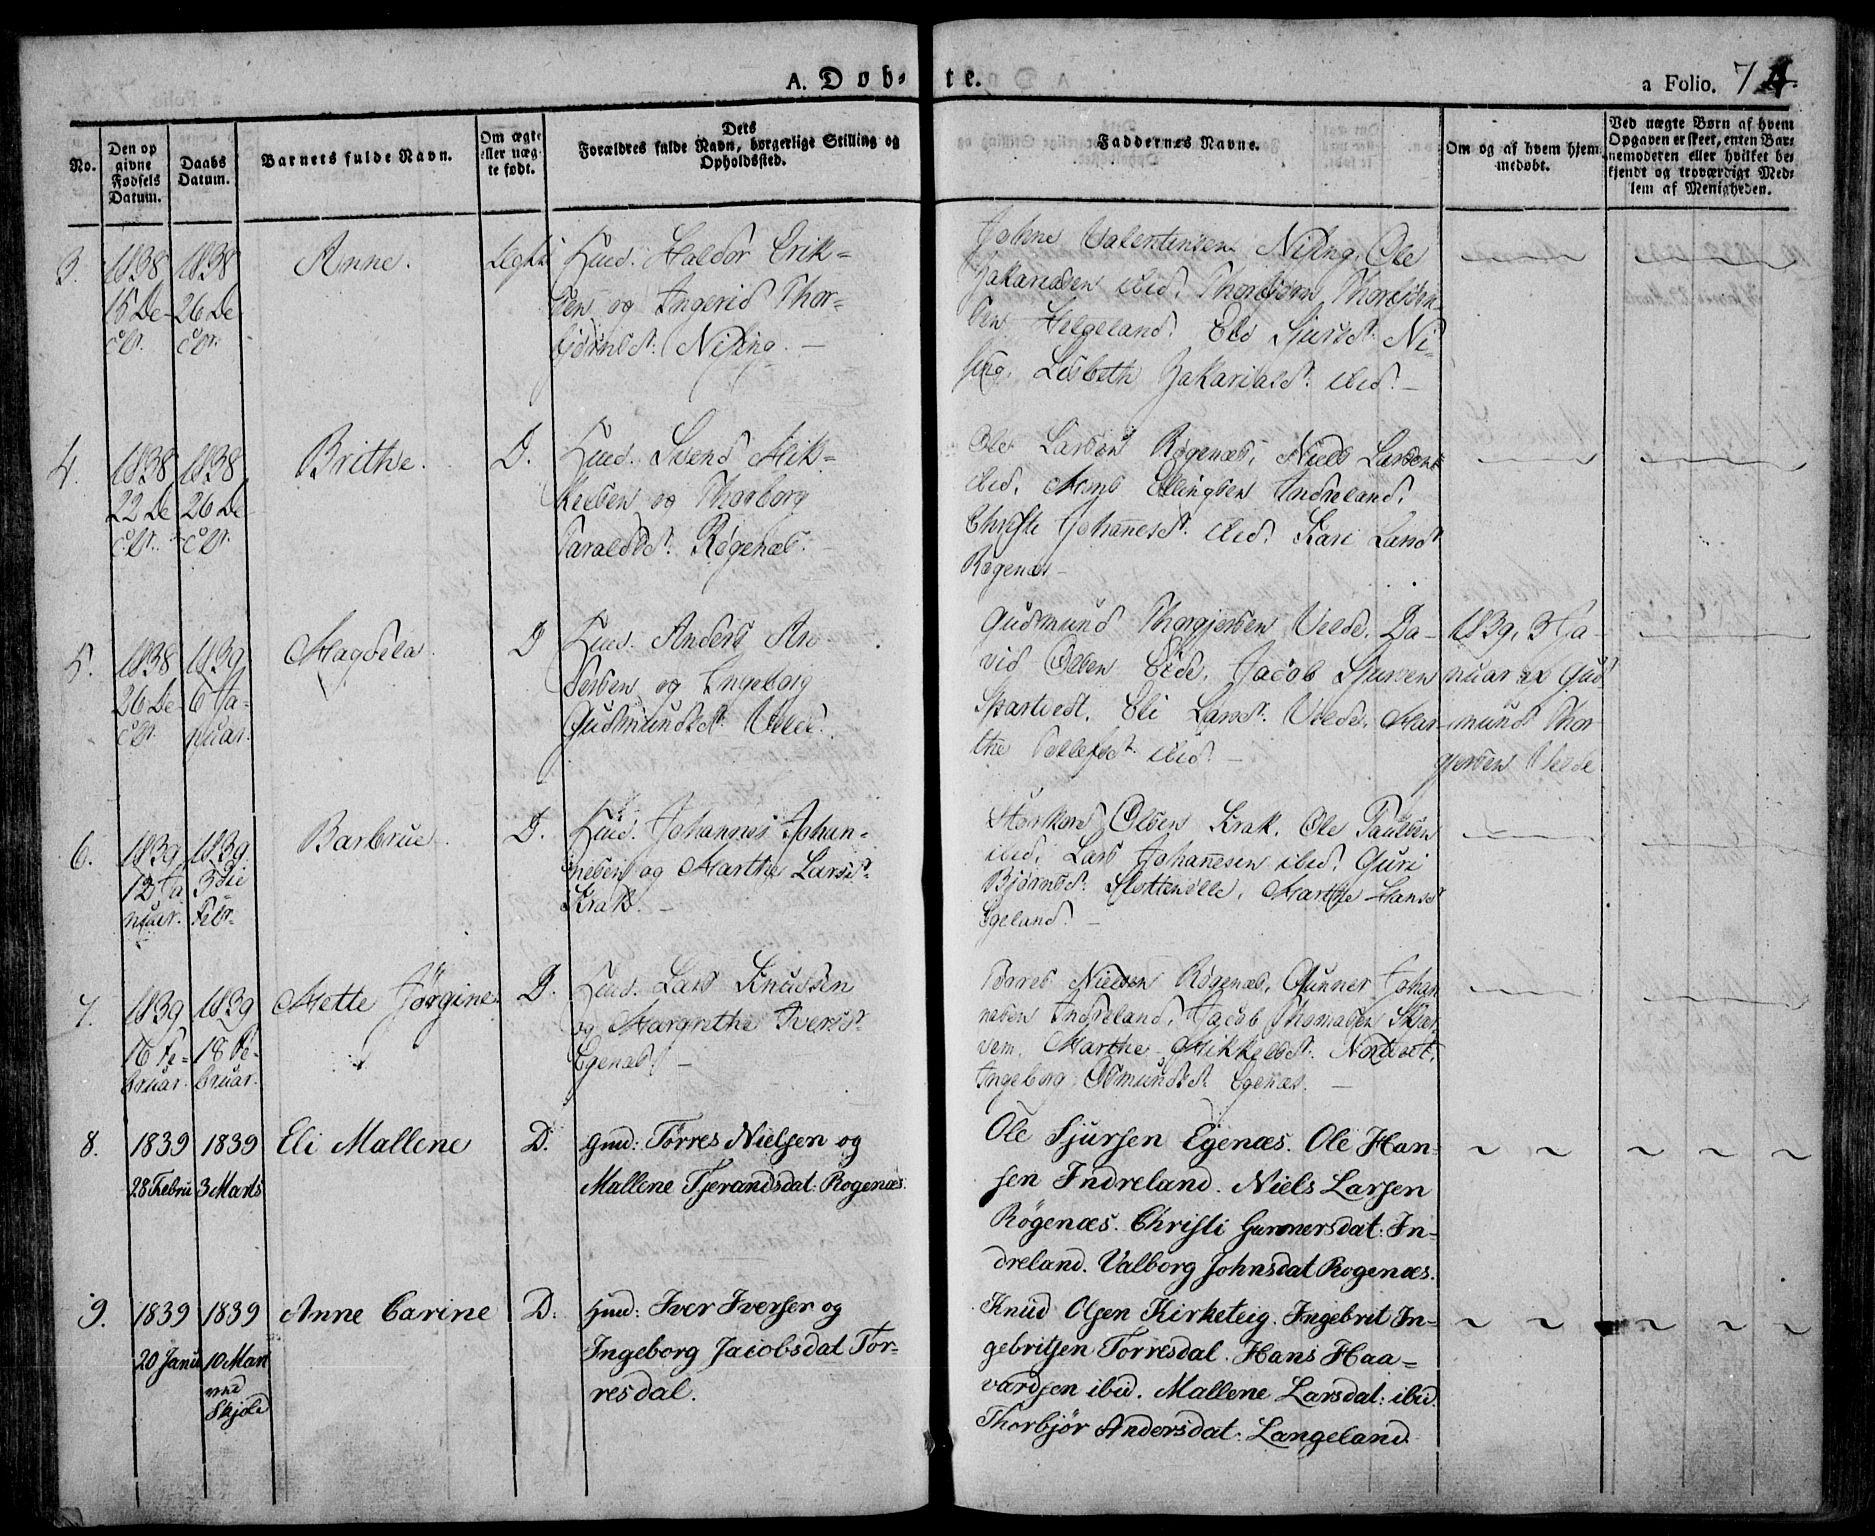 A. Døb-te.
a Folio. 74.
No.
Den op
givne
Fødsels
Datum.
Daabs
Datum.
Barnets fulde Navn.
Om ægte
eller uæg-
te født.
Dets
Forældres fulde Navn, borgerlige Stilling og
Opholdssted.
Faddernes Navne.
Om og af hvem hjem-
medøbt.
Ved uægte Børn af hvem
Opgaven er skeet, enten Bar-
nemoderen eller hvilket be-
kjendt og troværdigt Med-
lem af Menigheden.
3.
1838
15 De-
cbr.
1838
26 De
cbr.
Anne.
Ægte
Huusf. Haldor Erik-
sen og Ingerid Thor-
bjørnsdt: Nising. —
Johne Valentinsen Nising, Ole
Zakariasen ibid, Thorbjørn Thorbjørn
sen Helgeland. Eli Sjursdt. Ni-
sing. Lisbeth Zakariasdt: ibid. —
4.
1838
22 De
cbr.
1838
26 De
cbr.
Brithe.
D.
Svend Mik-
kelsen og Thorborg
Taraldsdt: Røgenæs.
Ole Larsen Røgenæs, Niels Larsen
ibid. Mons Ellingsen Indreland,
Christi Johanesdt. ibid. Kari Larsdt
Røgenæs —
5.
1838
26 De-
cbr.
1839
6 Ja-
nuar.
Magdela.
D
Anders An
dersen og Ingeborg
Gudmundsdt. Velde.
Gudmund Thorgjersen Velde. Da-
vid Olsen Eide. Jacob Sjursen
Spartveit. Eli Larsdt: Velde. Mar-
the Tollefsdt ibid. —
1839, 3 Ja-
nuar af Gud
mund Thor
gjersen Velde
6.
1839
12 Ja
nuar.
1839.
3die
Febr.
Barbrue.
D.
Johannes Johan-
nesen og Marthe Larsdt.
Krak. —
Storkor Olsen Krak. Ole Paulsen
ibid, Lars Johannesen ibid. Guri
Bjørnsdt: Slotteville, Marthe Hansdt
Egeland. —
7.
1839
16 Fe-
bruar.
1839
18 Fe-
bruar.
Mette Jørgine.
D.
Lars Knudsen
og Margrethe Iversdt.
Egenæs. —
Torres Nielsen Røgenæs, Gunner Johan
nesen Indreland, Jacob Thomasen Skjær
vem. Marthe Mikkelsdt. Nordvet.
Ingeborg Osmundsdt. Egenæs. —
8.
1839
28 Febru
1839
3 Marts
Eli Mallene
D.
Hmd: Tørres Nielsen og
Mallene Tjerandsdat: Rogenæs.
Ole Sjursen Egenæs. Ole Han-
sen Indreland. Niels Larsen
Røgenæs. Christi Gunnersdat: In-
dreland. Valborg Johnsdat Rogenæs.
9.
1839
20 Janu
1839
10 Mart
ved
Skjold
Anne Carine
D:
Hmd: Iver Iversen og
Ingeborg Jacobsdat Tor-
resdal.
Knud Olsen Kirketeig. Ingebrit In-
gebritsen Torresdal. Hans Haa-
vardsen ibid. Mallene Larsdat: ibid.
Thorbjør Andersdat: Langeland.